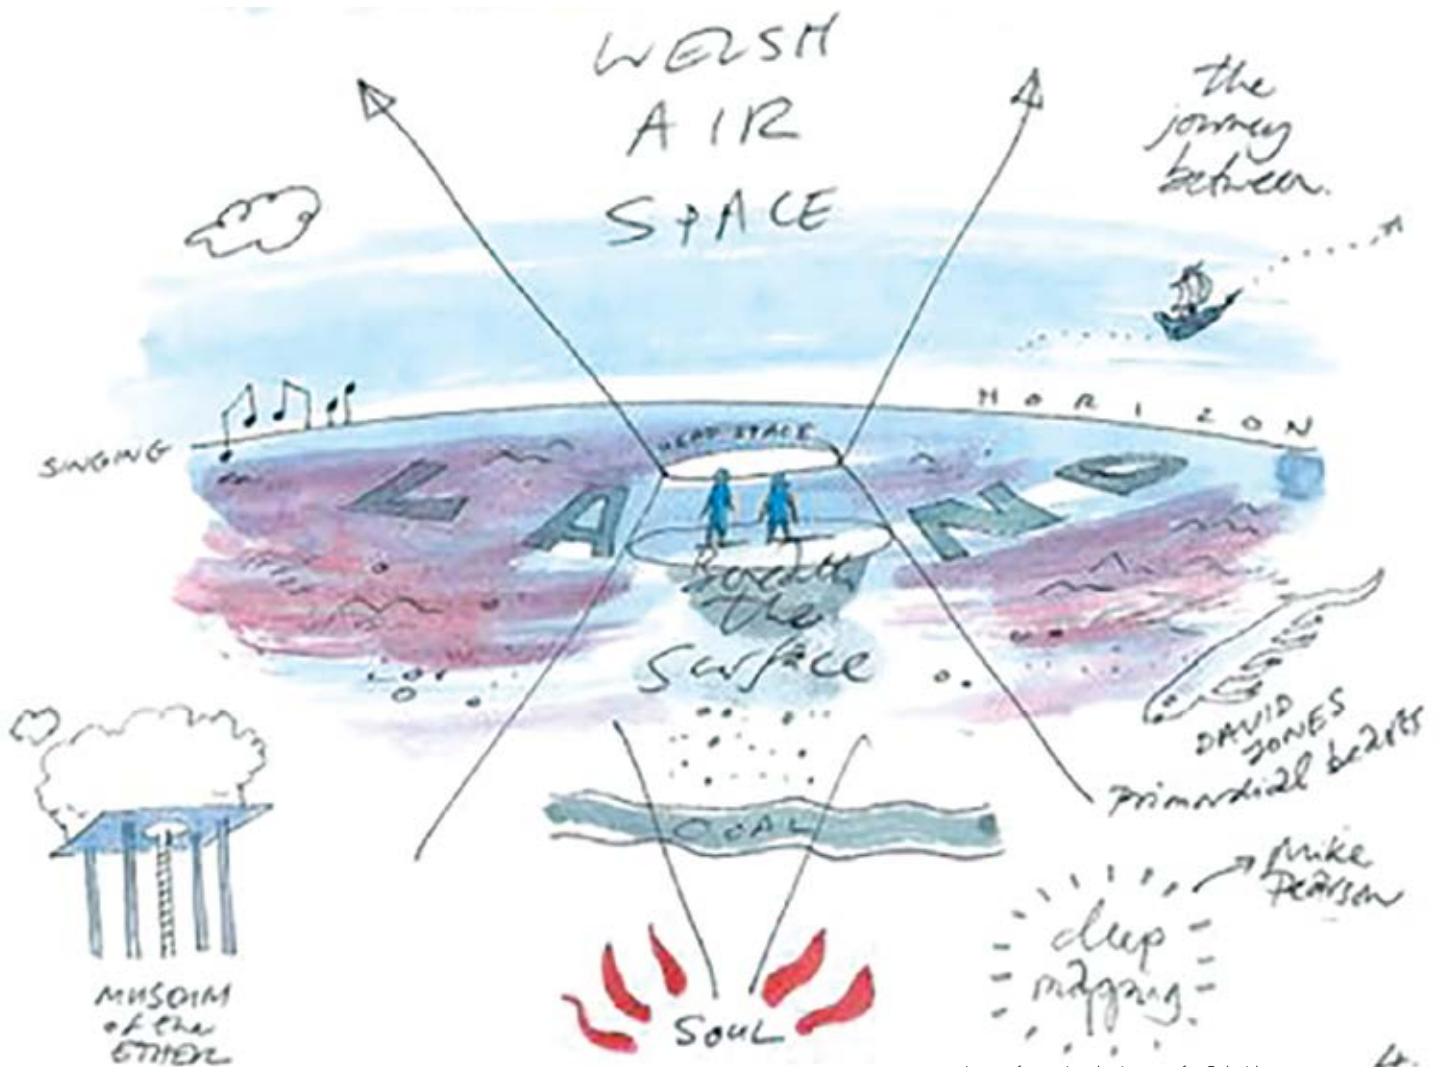 WELSH
AIR
SPACE
the
journey
between.
HORIZON
SINGING
HEAD SPACE
LAND
Beneath
the
Surface
DAVID
JONES
Primordial beasts
COAL
Mike
Pearson
deep
mapping
MUSEUM
of the
ETHER
SOUL